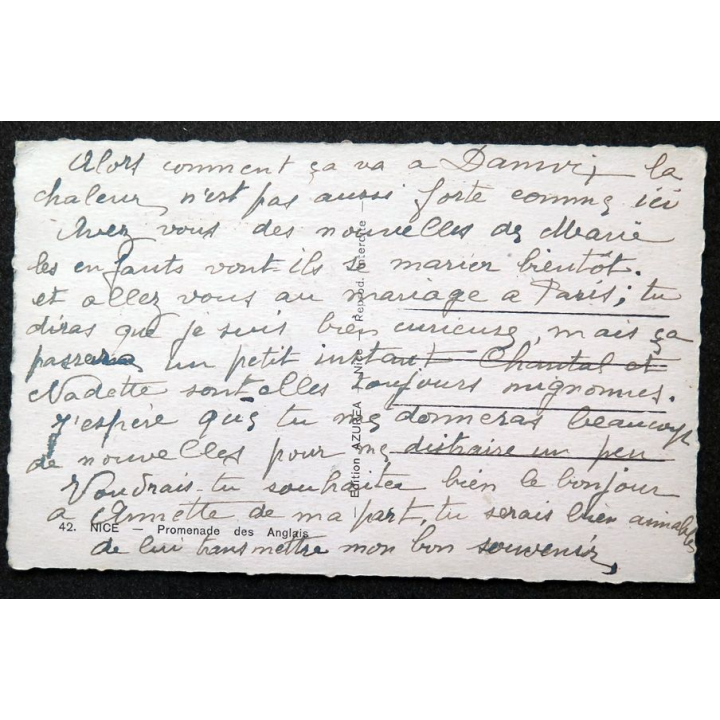 Alors comment ça va a Damvix la
chaleur, n'est pas aussi forte comme ici
Avez vous des nouvelles de Marie
les enfants vont-ils se marier bientôt.
et allez vous au mariage a Paris; tu
diras que je suis bien curieuse, mais ça
passera un petit instant Chantal et
Nadette sont elles toujours mignonnes.
J'espère que tu me donneras beaucoup
de nouvelles pour me distraire un peu
Voudrais-tu souhaiter bien le bonjour
a Annette de ma part, tu serais bien aimable
de lui transmettre mon bon souvenir,
42. NICE — Promenade des Anglais
Edition AZUREA - Nice - Reprod. Interdite